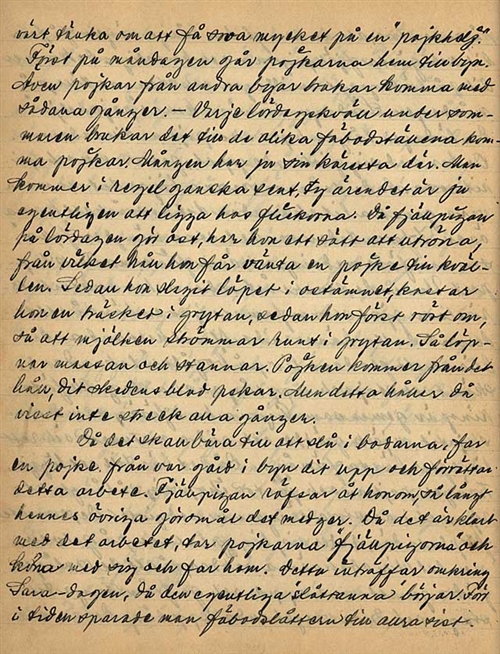 värt tänka om att få sova mycket på en "pojkhelg."
Först på måndagen går pojkarna hem till byn.
Även pojkar från andra byar brukar komma med
sådana gånger. — Varje lördagskväll under som-
maren brukar det till de olika fäbodställena kom-
ma pojkar. Mången har ju sin käresta där. Man
kommer i regel ganska sent, ty ärendet är ju
egentligen att ligga hos flickorna. Då fjällpigan
på lördagen gör ost, har hon ett sätt att utröna,
från vilket håll hon får vänta en pojke till kväl-
len. Sedan hon slagit löpet i ostämnet, kastar
hon en träsked i grytan, sedan hon först rört om,
så att mjölken strömmar runt i grytan. Så löp-
nar massan och stannar. Pojken kommer från det
håll, dit skedens blad pekar. Men detta håller då
visst inte streck alla gånger.
Då det skall bära till att slå i bodarna, far
en pojke från var gård i byn dit upp och förrättar
detta arbete. Fjällpigan räfsar åt honom, så långt
hennes övriga göromål det medger. Då det är klart
med det arbetet, tar pojkarna fjällpigorna och
korna med sig och far hem. Detta inträffar omkring
Sara-dagen, då den egentliga slåttanna börjar. Förr
i tiden sparade man fäbodslåttern till allra sist.